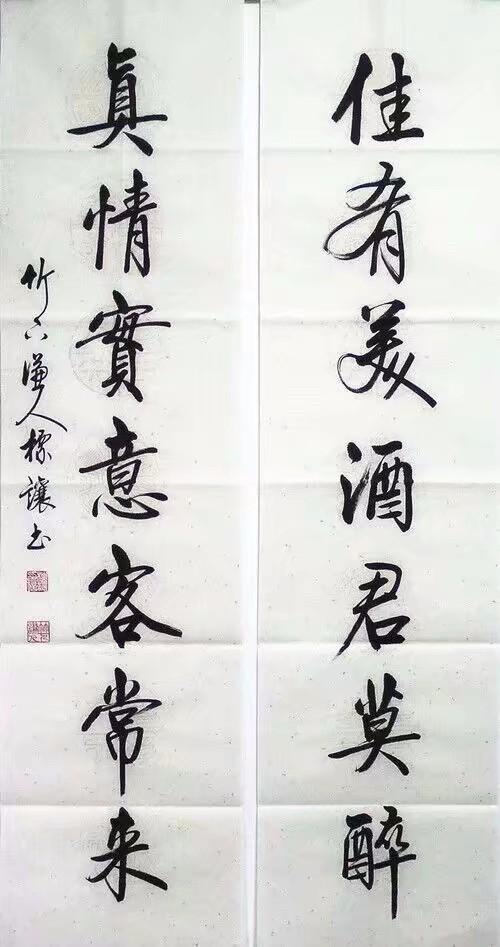 佳肴美酒君莫醉
真情實意客常来
竹下謙人標讓书